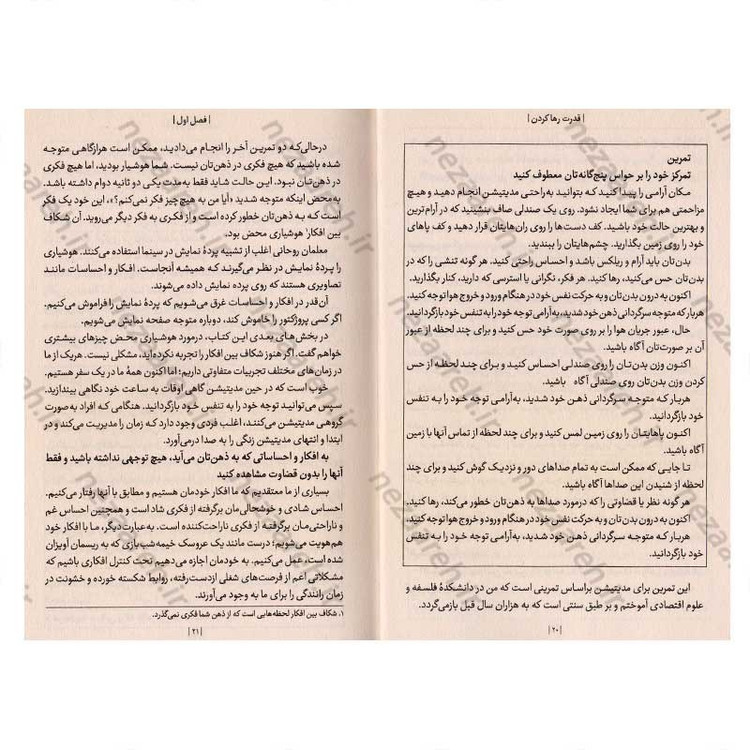 | قدرت رها کردن |
تمرین
تمرکز خود را بر حواس پنج‌گانه‌تان معطوف کنید
مکان آرامی را پیدا کنید که بتوانید به‌راحتی مدیتیشن انجام دهید و هیچ
مزاحمتی هم برای شما ایجاد نشود. روی یک صندلی صاف بنشینید که در آرام‌ترین
و بهترین حالت خود باشید. کف دست‌ها را روی ران‌هایتان قرار دهید و کف پاهای
خود را روی زمین بگذارید. چشم‌هایتان را ببندید.
بدن‌تان باید آرام و ریلکس باشد و احساس راحتی کنید. هر گونه تنشی را که در
بدن‌تان حس می‌کنید، رها کنید. هر فکر، نگرانی یا استرسی که دارید، کنار بگذارید.
اکنون به درون بدن‌تان و به حرکت نفس خود در هنگام ورود و خروج هوا توجه کنید.
هربار که متوجه سرگردانی ذهن خود شدید، به‌آرامی توجه خود را به تنفس خود بازگردانید.
حال، عبور جریان هوا را بر روی صورت خود حس کنید و برای چند لحظه از عبور
آن بر صورت‌تان آگاه باشید.
اکنون وزن بدن‌تان را روی صندلی احساس کنید و برای چند لحظه از حس
کردن وزن بدن‌تان روی صندلی آگاه باشید.
هربار که متوجه سرگردانی ذهن خود شدید، به‌آرامی توجه خود را به تنفس
خود بازگردانید.
اکنون پاهایتان را روی زمین لمس کنید و برای چند لحظه از تماس آنها با زمین
آگاه باشید.
تا جایی که ممکن است به تمام صداهای دور و نزدیک گوش کنید و برای چند
لحظه از شنیدن این صداها آگاه باشید.
هر گونه نظر یا قضاوتی را که درمورد صداها به ذهن‌تان خطور می‌کند، رها کنید.
اکنون به درون بدن‌تان و به حرکت نفس خود در هنگام ورود و خروج هوا توجه کنید.
هربار که متوجه سرگردانی ذهن خود شدید، به‌آرامی توجه خود را به تنفس
خود بازگردانید.
این تمرین برای مدیتیشن براساس تمرینی است که من در دانشکدهٔ فلسفه و
علوم اقتصادی آموختم و بر طبق سنتی است که به هزاران سال قبل بازمی‌گردد.
| ۲۰ |
| فصل اول |
درحالی‌که دو تمرین آخر را انجام می‌دادید، ممکن است هرازگاهی متوجه
شده باشید که هیچ فکری در ذهن‌تان نیست. شما هوشیار بودید، اما هیچ فکری
در ذهن‌تان نبود. این حالت شاید فقط به‌مدت یکی دو ثانیه دوام داشته باشد.
به‌محض اینکه متوجه شدید «آیا من به هیچ چیز فکر نمی‌کنم؟»، این خود یک فکر
است که به ذهن‌تان خطور کرده است و از فکری به فکر دیگر می‌روید. آن شکاف
بین افکار۱ هوشیاری محض بود.
معلمان روحانی اغلب از تشبیه پردهٔ نمایش در سینما استفاده می‌کنند. هوشیاری
را پردهٔ نمایش در نظر می‌گیرند که همیشه آنجاست. افکار و احساسات مانند
تصاویری هستند که روی پرده نمایش داده می‌شوند.
آن‌قدر در افکار و احساسات غرق می‌شویم که پردهٔ نمایش را فراموش می‌کنیم.
اگر کسی پروژکتور را خاموش کند، دوباره متوجه صفحه نمایش می‌شویم.
در بخش‌های بعدی این کتاب، درمورد هوشیاری محض چیزهای بیشتری
خواهم گفت. اگر هنوز شکاف بین افکار را تجربه نکرده‌اید، مشکلی نیست. هریک از ما
در زمان‌های مختلف تجربیات متفاوتی داریم؛ اما اکنون همهٔ ما در یک سفر هستیم.
خوب است که در حین مدیتیشن گاهی اوقات به ساعت خود نگاهی بیندازید.
سپس می‌توانید توجه خود را به تنفس خود بازگردانید. هنگامی که افراد به‌صورت
گروهی مدیتیشن می‌کنند، اغلب فردی وجود دارد که زمان را مدیریت می‌کند و در
ابتدا و انتهای مدیتیشن زنگی را به صدا درمی‌آورد.
به افکار و احساساتی که به ذهن‌تان می‌آید، هیچ توجهی نداشته باشید و فقط
آنها را بدون قضاوت مشاهده کنید
بسیاری از ما معتقدیم که ما افکار خودمان هستیم و مطابق با آنها رفتار می‌کنیم.
احساس شادی و خوشحالی‌مان برگرفته از فکری شاد است و همچنین احساس غم
و ناراحتی‌مان برگرفته از فکری ناراحت‌کننده است. به‌عبارت دیگر، ما با افکار خود
هم‌هویت می‌شویم؛ درست مانند یک عروسک خیمه‌شب‌بازی که به ریسمان آویزان
شده است، عمل می‌کنیم. به خودمان اجازه می‌دهیم تحت کنترل افکاری باشیم که
مشکلاتی اعم از فرصت‌های شغلی ازدست‌رفته، روابط شکسته خورده و خشونت در
زمان رانندگی را برای ما به وجود می‌آورند.
۱. شکاف بین افکار لحظه‌هایی است که از ذهن شما فکری نمی‌گذرد.
| ۲۱ |
nezaareh.ir